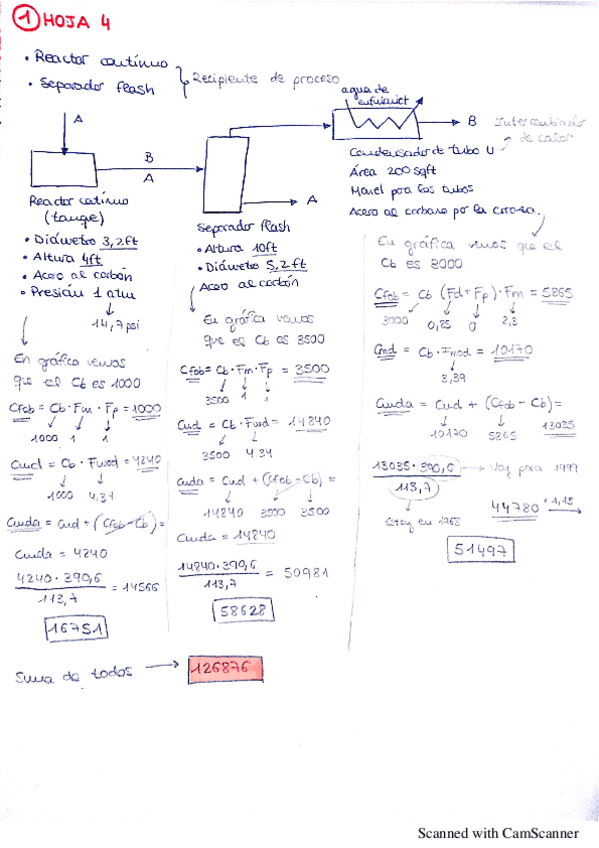 1 HOJA 4
• Reactor continuo
• Separador flash
Recipiente de proceso
A
B
A
A
agua de
enfriamiet
B
Intercambiador
de calor
Reactor catinuo
(tanque)
• Diámetro 3,2ft
• Altura 4ft
• Acero al carbón
• Presión 1 atm
14,7psi
En gráfica vemos
que el Cb es 1000
Cfob = Cb · Fm · Fp = 1000
1000 1 1
Cmd = Cb · Fmod = 4240
1000 4,34
Cmda = Cmd + (Cfob - Cb) =
Cmda = 4240
4240 · 390,6 = 14566
113,7
16751
Separador flash
• Altura 10ft
• Diámetro 5,2ft
Acero al carbón
En gráfica vemos
que es Cb es 3500
Cfob = Cb · Fm · Fp = 3500
3500 1 1
Cmd = Cb · Fmd = 14840
3500 4.34
Cmda = Cmd + (Cfob - Cb) =
14840 3500 3500
Cmda = 14840
14840 · 390,6 = 50981
113,7
58628
Condensador de tubo U
Área 200 sqft
Monel para los tubos
Acero al carbono por la coraza.
En gráfica vemos que el
Cb es 3000
Cfob = Cb (Fd + Fp) · Fm = 5865
3000 0,85 0 2,3
Cmd = Cb · Fmod = 10170
3,39
Cmda = Cmd + (Cfob - Cb) =
10170 5865 13035
13035 · 390,6 Voy para 1999
113,7
Estoy en 1968
44780 · 1,15
51497
Suma de todos 126876
Scanned with CamScanner